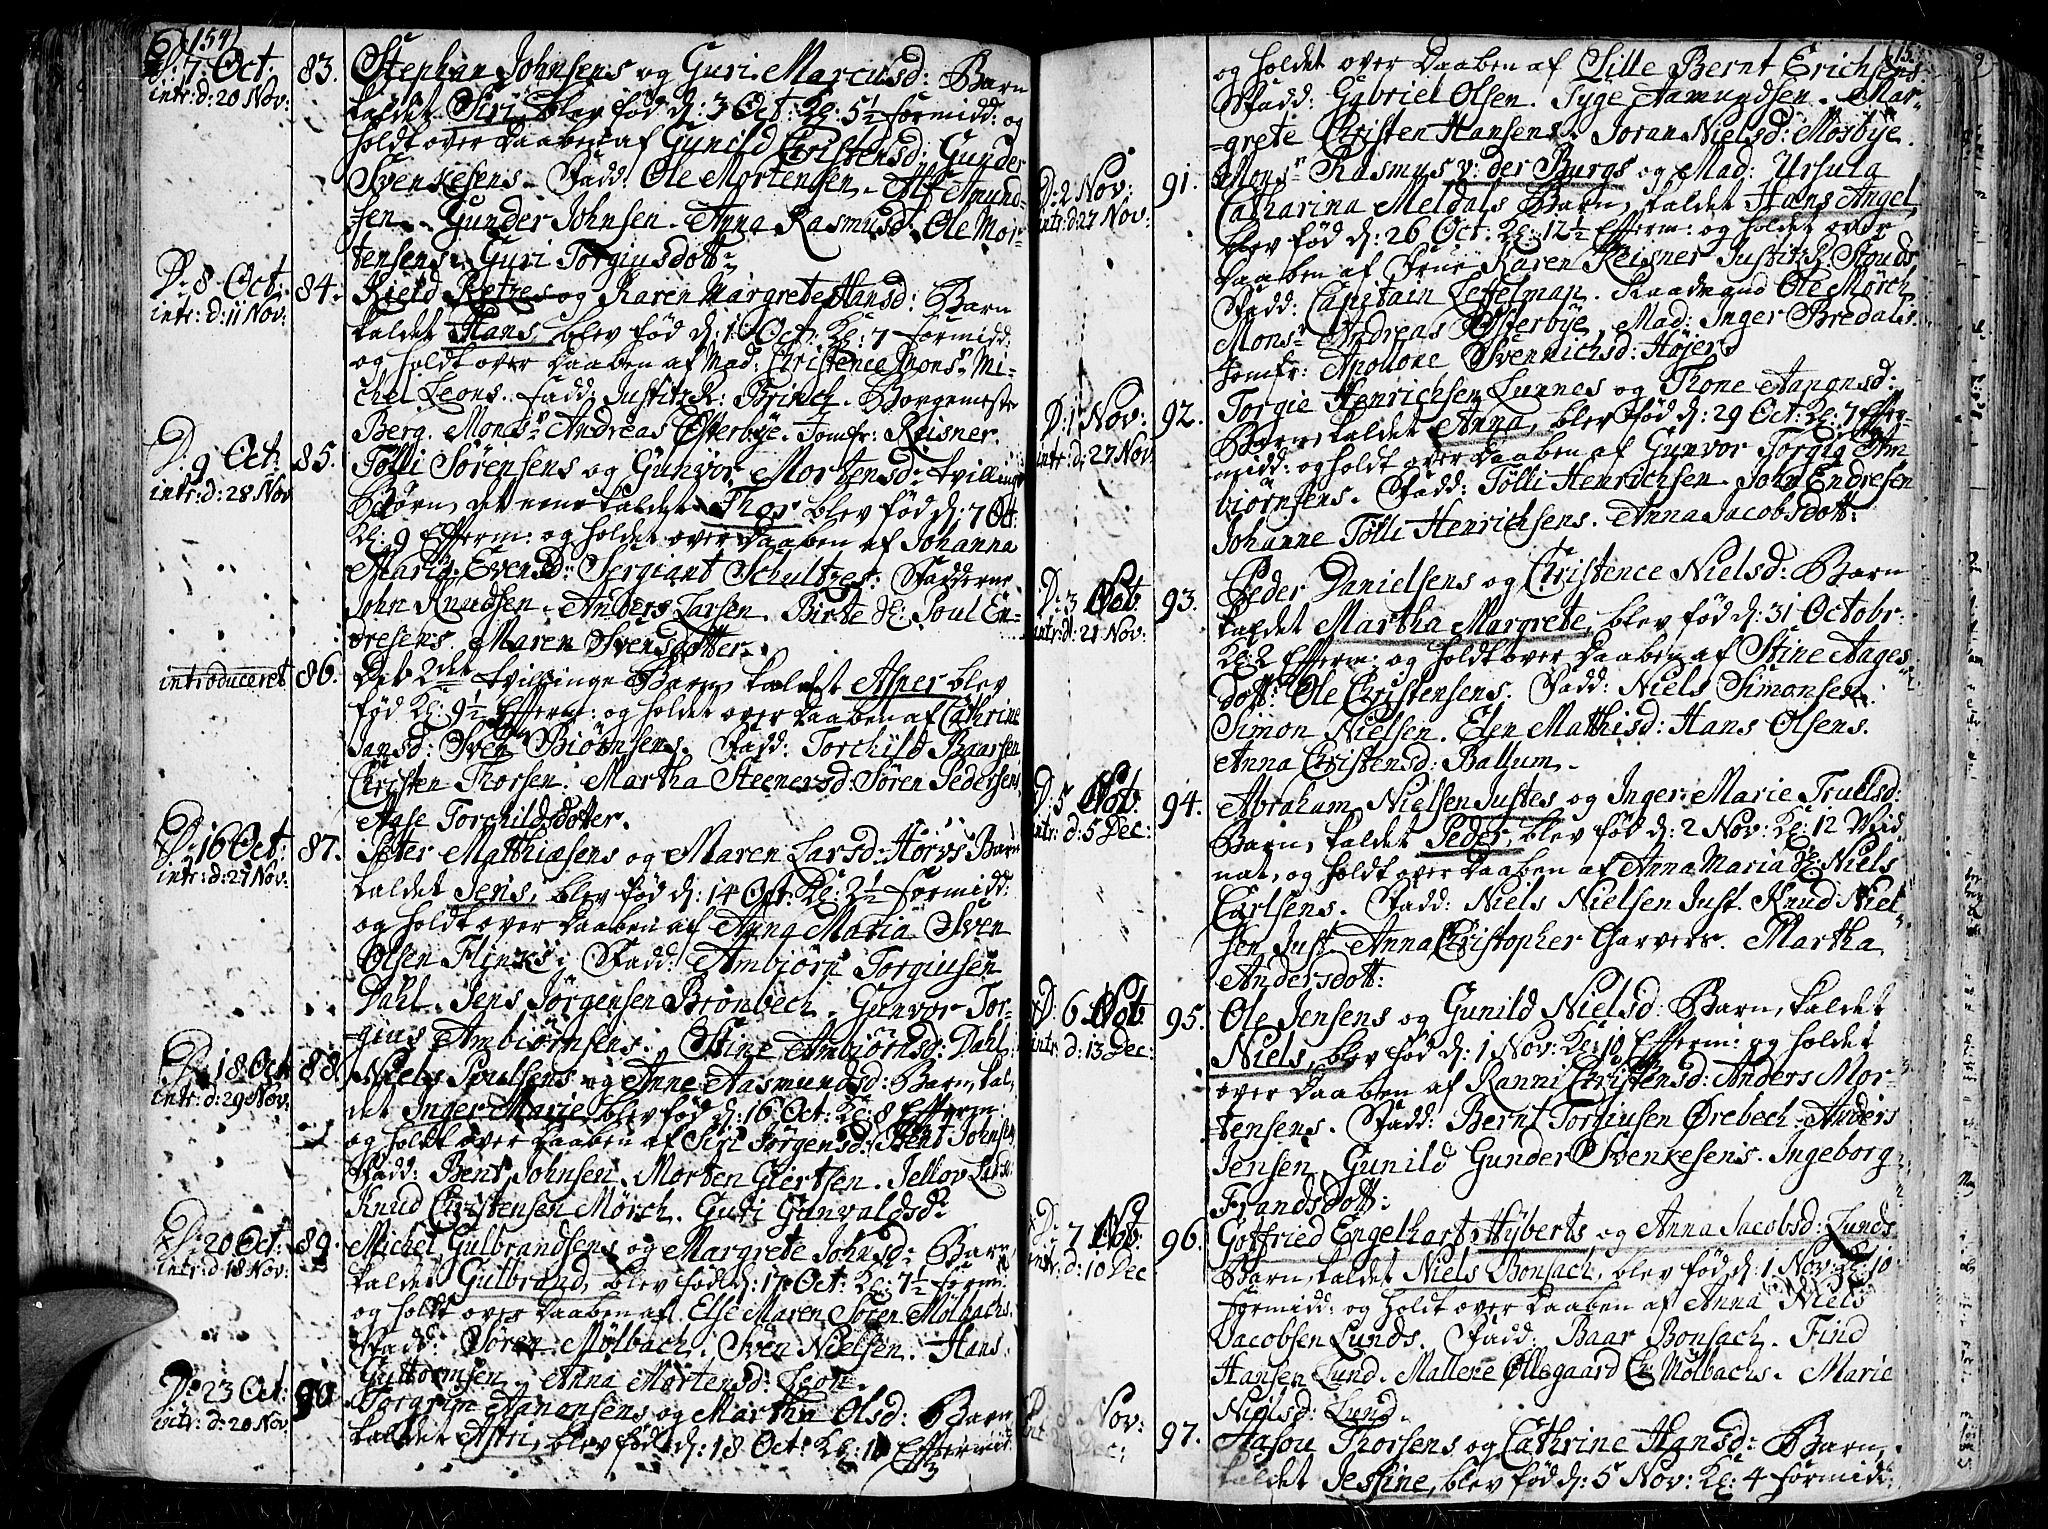 (154)
D: 7. Oct: 83. Stephan Johnsens og Guri Marcusd: Barn
intr: d: 20 Nov: kaldet Siri, blev fød d: 3 Oct: Kl: 5½ formidd: og
holdt over Daaben af Gunild Christensd: Gunder
Svenkesens. Fadd: Ole Mortensen. Alf Amund-
sen. Gunder Johnsen. Anna Rasmusd: Ole Mor-
tensens. Guri Torgiusdott:
D: 8 Oct: 84. Kield Retzes og Karen Margrete Hansd: Barn
intr: d: 11 Nov: kaldet Hans, blev fød d: 1 Oct: Kl: 7 formidd:
og holdt over Daaben af Mad: Christence Monsr Mi-
chel Leons. Fadd: Justitz R: Brinch. Borgemestr
Berg. Monsr Andreas Østerbye. Jomfr: Reisner.
D: 9 Oct: 85. Tølli Sørensens og Gunvor Mortensd: tvillinge
intr: d: 28 Nov Børn, det eene kaldet Thos blev fød d: 7 Oct:
Kl: 9 Efferm: og holdet over Daaben af Johanna
Maria Evensd: Sergiant Schultzes. Fadderne
John Knudsen. Anders Larsen. Birte Kl: Poul En-
dresens. Maren Svensdotter.
introduceret 86. Det 2det tvillinge Barn, kaldet Asner blev
fød Kl: 9½ Efferm: og holdet over Daaben af Cathrine
Jansd: Sven Biørnsens. Fadd: Torchild Baarsen
Christen Thorsen. Martha Steenersd: Søren Pedersens
Aase Torchildsdotter.
D: 16 Oct: 87. Peter Matthiæsens og Maren Larsd: Horvs Barn
intr: d: 27 Nov: kaldet Jens, blev fød d: 14 Oct: Kl: 2½ formidd:
og holdt over Daaben af Anna Maria Sven
Olsen Flinks. Fadd: Ambiörn Torgiusen
Dahl. Jens Jörgensen Brønbech. Gunvor Tor-
gius Ambiörnsens. Stine Ambiörnsd: Dahl.
D: 18 Oct 88. Niels Poulsens og Anne Aasmundsd: Barn, kal-
intr: d: 29 Nov: det Inger Marie, blev fød d: 16 Oct: Kl: 8 Efferm:
og holdt over Daaben af Siri Jørgensd: Bent Johnsens
Fadd: Bent Johnsen. Morten Giertsen. Jellov Larsd:
Knud Christensen Mörch. Guri Gunvaldsd:
D: 20 Oct: 89. Michel Gulbrandsens og Margrete Johnsd: Barn,
intr: d: 18 Nov: kaldet Gulbrand, blev fød d: 17 Oct: Kl: 7½ form:
og holdt over Daaben af Else Maren Søren Mølbachs.
Fadd: Søren Mølbach. Sven Nielsen. Hans
Guttormsen. Anna Mortensd: Leon.
D: 23 Oct: 90. Torgrim Aanonsens og Martha Olsd: Barn
intr: d: 20 Nov kaldet Astri, blev fød d: 18 Oct: Kl: 10 Effermid:
og holdet over Daaben af Lille Bernt Erichsens
Fadd: Gabriel Olsen. Syge Aamundsen. Mar-
grete Christen Hansens. Joran Nielsd: Mosbye.
D: 2 Nov: 91. Monsr Rasmus v: der Burgs og Mad: Ursula
intr: d: 27 Nov: Catharina Meldals Barn, kaldet Hans Angel,
blev fød d: 26 Oct: Kl: 12½ Efferm: og holdet over
Daaben af Frue Karen Reisner Justitz R: Stouds
Fadd: Capitain Leffelman. Raadmand Ole Mörch
Monsr Andreas Østerbye. Mad: Inger Bredals.
Jomfr: Apollone Svennichsd: Høyer.
D: 1 Nov: 92. Torgie Henrichsen Lunnes og Thone Aanonsd:
intr: d: 27 Nov Barn, kaldet Anna, blev fød d: 29 Oct: Kl: 7 Effer-
midd: og holdt over Daaben af Gunvor Torgie Am
biörnsens. Fadd: Tölli Henrichsen. John Endresen
Johanne Tölli Henrichsens. Anna Jacobsdott:
D: 3 Nov 93. Peder Danielsens og Christence Nielsd: Barn
intr: d: 21 Nov: kaldet Martha Margrete, blev fød d: 31 Octobr:
Kl: 2 Efferm: og holdt over Daaben af Stine Aages
dott: Ole Christensens. Fadd: Niels Simonsen.
Simon Nielsen. Elen Matthisd: Hans Olsens.
Anna Christensd: Ballum.
D: 5 Nov 94. Abraham Nielsen Justes og Inger Marie Truelsd:
intr: d: 5 Dec: Barn, kaldet Peder, blev fød d: 2 Nov: Kl: 12 Mid
nat, og holdt over Daaben af Anna Maria Kl: Niels
Carlsens. Fadd: Niels Nielsen Just. Knud Niel-
sen Just. Anna Christopher Garvers. Martha
Andersdott:
D: 6 Nov 95. Ole Jensens og Gunild Nielsd: Barn, kaldet
intr: d: 13 Dec: Niels, blev fød d: 1 Nov: Kl: 10 Efferm: og holdet
over Daaben af Ranni Christensd: Anders Mor-
tensens. Fadd: Bernt Torgiusen Ørebech. Anders
Jensen. Gunild Gunder Svenkesens. Ingeborg
Frandsdott:
D: 7 Nov: 96. Gotfried Engelhart Hyberts og Anna Jacobsd: Lunds
intr: d: 10 Dec Barn, kaldet Niels Bonsach, blev fød d: 1 Nov: Kl: 10
formidd: og holdt over Daaben af Anna Niels
Jacobsen Lunds. Fadd: Baar Bonsach. Find
Hansen Lund. Mallene Øllegaard Chr Mölbachs. Marie
Nielsd: Lund.
Nov: 97. Hasou Thorsens og Cathrine Hansd: Barn,
Dec: kaldet Jessine, blev fød d: 5 Nov: Kl: 4 formidd: